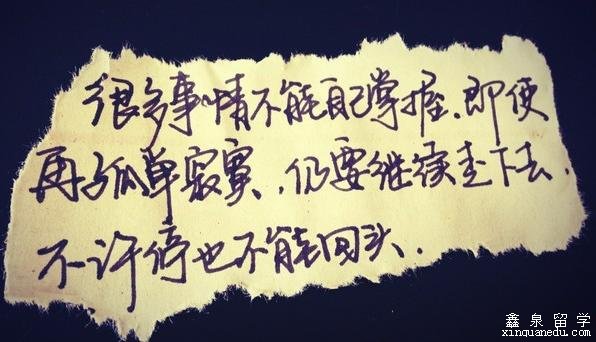 很多事情不能自己掌握.即使
再孤单寂寞.仍要继续走下去.
不许停也不能回头.
鑫泉留学
xinquanedu.com